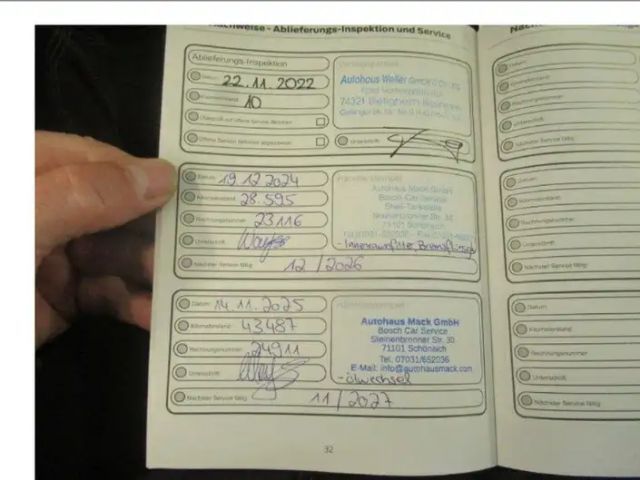 Nachweise - Ablieferungs-Inspektion und Service
Ablieferungs-Inspektion
Datum 22.11.2022
10
Autohaus Weller GmbH & Co. KG
74321 Bietigheim-Bissingen
Unterschrift
Datum 19 12 2024
Kilometerstand 28.595
Rechnungsnummer 23116
Unterschrift
Nächster Service fällig 12/2026
Autohaus Mack GmbH
Bosch Car Service
Shell-Tankstelle
Steinenbronner Str. 30
71101 Schönaich
-Innenraumfilter,
Datum 14.11.2025
Kilometerstand 43487
Rechnungsnummer 24911
Unterschrift
Nächster Service fällig 11/2027
Autohaus Mack GmbH
Bosch Car Service
Steinenbronner Str. 30
71101 Schönaich
Tel. 07031/652036
E-Mail: info@autohausmack.com
-Ölwechsel
32
Datum
Kilometerstand
Rechnungsnummer
Unterschrift
Nächster Service fällig
Datum
Kilometerstand
Rechnungsnummer
Unterschrift
Nächster Service fällig
Datum
Kilometerstand
Rechnungsnummer
Unterschrift
Nächster Service fällig